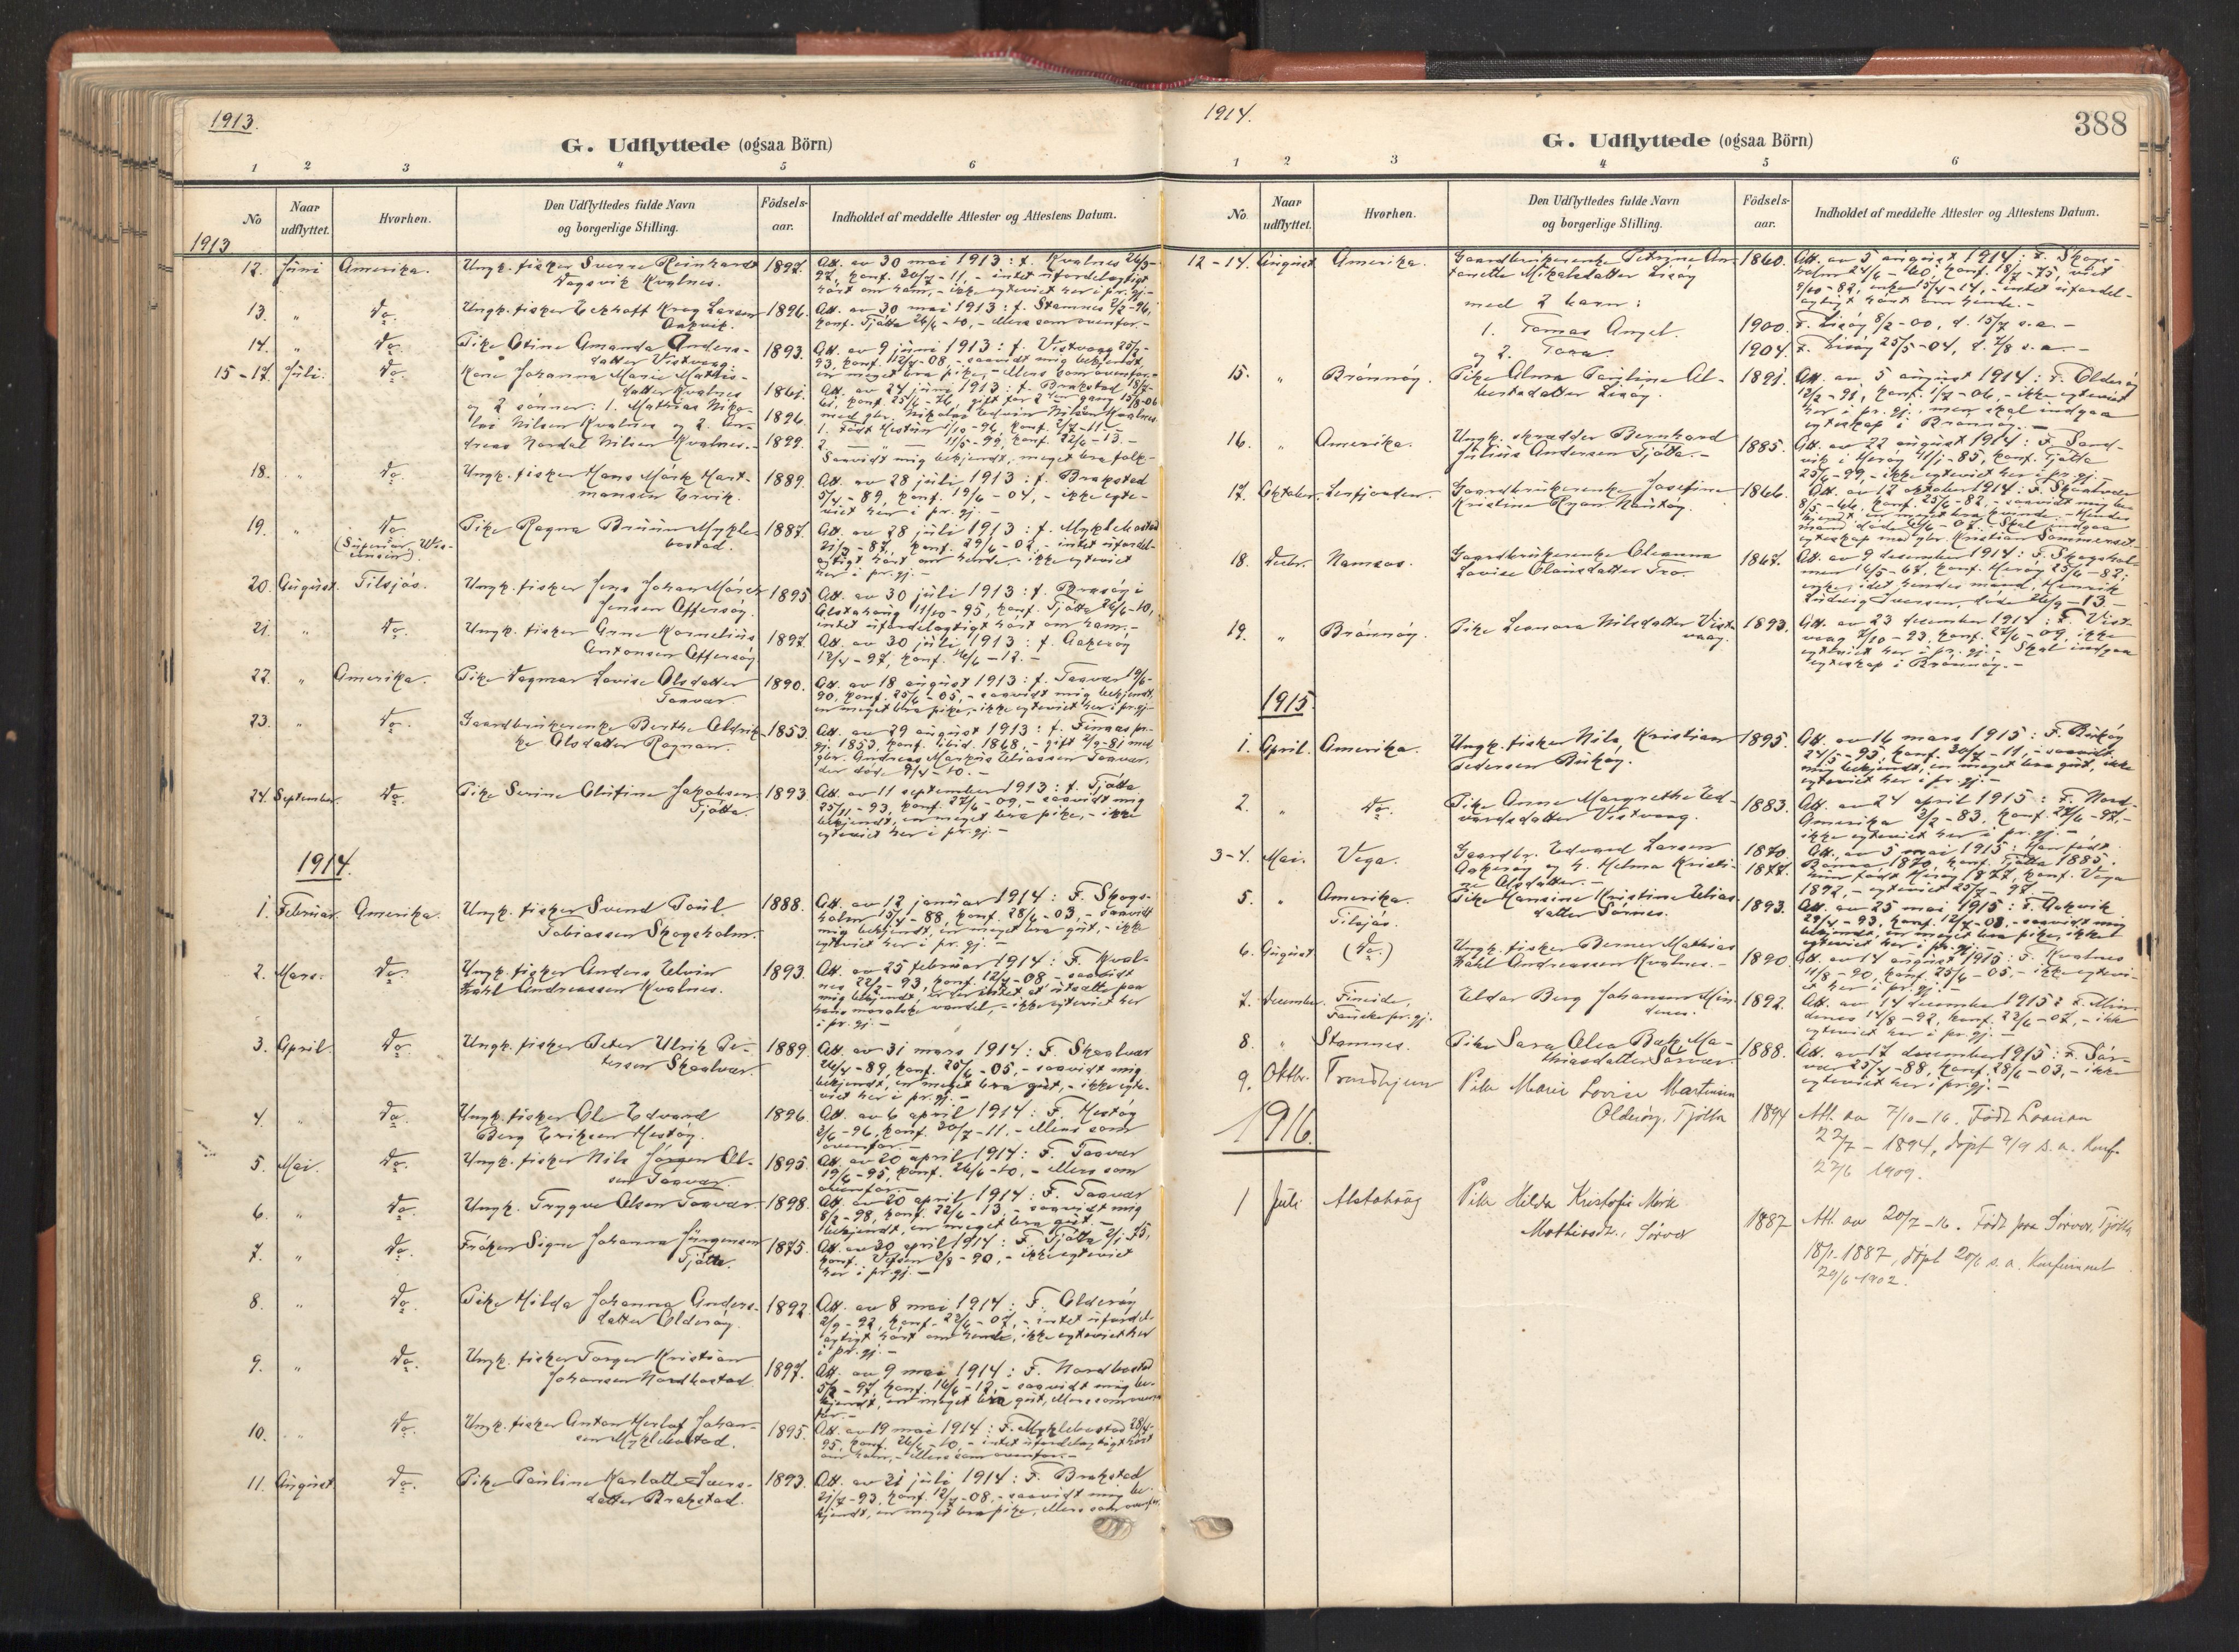 1913.
G. Udflyttede (ogsaa Börn)
1 2 3 4 5 6
No
Naar udflyttet.
Hvorhen.
Den Udflyttedes fulde Navn og borgerlige Stilling.
Födselsaar.
Indholdet af meddelte Attester og Attestens Datum.
1913
12. Juni Amerika. Ungk. fisker Sverre Reinhardt 1897. Att. av 30 mai 1913: f. Kvalnes 26/3-
Dagsvik Kvalnes. 97, konf. 30/7-11, - intet ufordelagtigt
hørt om ham, - ikke egteviet her i pr.gj. -
13. " Do. Ungk. fisker Eckhoff Krog Larsen 1896. Att. av 30 mai 1913: f. Stamnes
Aakvik. konf. Tjøtta 26/6-10, - ellers som ovenfor. -
14. " Do. Pike Otine Amanda Anders- 1893. Att. av 9 juni 1913: f. Vistvaag
datter Vistvaag 93, konf. 12/7-08, - saavidt mig bekjendt,
en meget bra pike, - ellers som ovenfor. -
15-17. Juli. Do. Kone Johanna Marie Mathis- Att. av 24 juni 1913: f. Brakstad
datter Kvalnes 1861. konf. 25/6-76, gift for 2den gang
og 2 sønner: 1. Mathias Niko- 1896. med gbr. Nikolai Edvin Nilsen Kvalnes.
lai Nilsen Kvalnes og 2. An- 1. Født
dreas Nordal Nilsen Kvalnes. - 1899. 2. 11/5-99, konf. 22/6-13. -
Saavidt mig bekjendt, meget bra folk -
18. " Do. Ungk. fisker Hans Mørk Hart- 1889. Att. av 28 juli 1913: f. Brakstad
mansen Ervik. 5/4-89, konf. 19/6-04, - ikke egte-
viet her i pr.gj. -
19. " Do. Pike Ragna Bruun Mykle- 1887. Att. av 28 juli 1913: f. Myklebostad
(Superior, Wis- bostad. 87, konf. 29/6-02, - intet ufordel-
consin). agtigt hørt om hende, - ikke egteviet
her i pr.gj. -
20. August. Tilsjøs. Ungk. fisker Jens Johan Mørck 1895 Att. av 30 juli 1913: f. Brasøy i
Jensen Offersøy. Alstahaug 11/10-95, konf. Tjøtta 26/6-10,
intet ufordelagtigt hørt om ham. -
21. " Do. Ungk. fisker Arne Kornelius 1897. Att. av 30 juli 1913: f. Aakerøy
Antonsen Offersøy 12/4-97, konf. 16/6-12. -
22. " Amerika. Pike Dagmar Lovise Olsdatter 1890. Att. av 18 august 1913: f. Tasvar
Tasvar 90, konf. 25/6-05, - saavidt mig bekjendt,
en meget bra pike, - ikke egteviet her i pr.gj.
23. " Do. Gaardbrukerenke Berthe Aldrik- 1853. Att. av 29 august 1913: f.
ke Olsdatter Rognan. gj. 1853, konf. ibid. 1868, - gift 81 med
gbr. Andreas Markus Eliassen Tasvar,
der døde 9/4-10. -
24. September. Do. Pike Serine Olufine Jakobsen 1893. Att. av 11 september 1913: f. Tjøtta
Tjøtta. 25/11-93, konf. 27/6-09, - saavidt mig
bekjendt, en meget bra pike, - ikke
egteviet her i pr.gj. -
1914.
1. Februar. Amerika. Ungk. fisker Svend Poul 1888. Att. av 12 januar 1914: F. Skogs-
Tobiassen Skogsholm. holm 15/4-88, konf. 28/6-03, - saavidt
mig bekjendt, en meget bra gut, - ikke
egteviet her i pr.gj. -
2. Mars. Do. Ungk. fisker Anders Edvin 1893. Att. av 25 februar 1914: F. Kval-
Kahl Andreassen Kvalnes. nes 22/2-93, konf. 12/7-08 - saavidt
mig bekjendt, er der intet at utsætte paa
hans moralske vandel, - ikke egteviet her
i pr.gj. -
3. April. Do. Ungk. fisker Peter Ulrik Pe- 1889. Att. av 31 mars 1914: F. Skaalvær
tersen Skaalvær. 26/4-89, konf. 25/6-05, - saavidt mig
bekjendt, en meget bra gut, - ikke egte-
viet her i pr.gj. -
4. " Do. Ungk. fisker Ole Edvard 1896 Att. av 6 april 1914: F. Hestøy
Berg Eriksen Hestøy. 2/6-96, konf. 30/7-11. - ellers som
ovenfor. -
5. Mai. Do. Ungk. fisker Nils Jørgen Ol- 1895. Att. av 20 april 1914: F. Tasvar
sen Tasvar. 19/6-95, konf. 26/6-10, - ellers som
ovenfor. -
6. " Do. Ungk. Trygve Olsen Tasvar 1898. Att. av 20 april 1914: F. Tasvar
8/2-98, konf. 22/6-13, - saavidt mig
bekjendt, en meget bra gut. -
7. " Do. Frøken Signe Johanna Jürgensen 1875. Att. av 30 april 1914: F. Tjøtta
Tjøtta. konf. Vefsen 90, - ikke egteviet
her i pr.gj. -
8. " Do. Pike Hilda Johanna Anders- 1892 Att. av 8 mai 1914: F. Olderøy
datter Olderøy. 2/9-92, konf. 23/6-07, - intet ufordel-
agtigt hørt om hende, ikke egteviet her
i pr.gj. -
9. " Do. Ungk. fisker Torger Kristian 1897. Att. av 9 mai 1914: F. Nordbostad
Johansen Nordbostad. 97, konf. 16/6-12, - saavidt mig be-
kjendt, en meget bra gut, ellers som oven-
for. -
10. " Do. Ungk. fisker Anton Herlof Johan- 1895. Att. av 19 mai 1914: F. Myklebostad 28/4-
sen Myklebostad. 95, konf. 26/6-10, - intet ufordelagtigt hørt
om ham, - ellers som ovenfor. -
11. August. Do. Pike Pauline Karlotte Ivers- 1893. Att. av 21 juli 1914: F. Brakstad
datter Brakstad. 21/7-93, konf. 12/7-08, - saavidt mig be-
kjendt, en meget bra pike, ellers som ovenfor.
1914. 388
G. Udflyttede (ogsaa Börn)
1 2 3 4 5 6
No.
Naar udflyttet.
Hvorhen.
Den Udflyttedes fulde Navn og borgerlige Stilling.
Födselsaar.
Indholdet af meddelte Attester og Attestens Datum.
12-14. August Amerika. Gaardbrukerenke Petrine An- 1860. Att. av 5 august 1914: F. Skogs-
tonette Mikalsdatter Lisøy holm 24/6-60, konf. 18/7-75, viet
med 2 barn: 9/10-82, enke 15/4-14, - intet ufordel-
agtigt hørt om hende. -
1. Tomas Angel. 1900. F. Lisøy 8/2-00, d. 15/7 s.a. -
og 2. Tora. 1904. F. Lisøy 25/5-04, d. 7/8 s.a. -
15. " Brønnøy. Pike Alma Pauline Al- 1891. Att. av 5 august 1914: F. Olderøy
bertsdatter Lisøy. 12/2-91, konf. 1/7-06, - ikke egteviet
her i pr.gj., men skal indgaa
egteskap i Brønnøy. -
16. " Amerika. Ungk. skrædder Bernhard 1885. Att. av 22 august 1914: F. Sand-
Julius Andersen Tjøtta. - vik i Herøy 11/1-85, konf. Tjøtta
25/6-99, - ikke egteviet her i pr.gj. -
17. Oktober. Leirfjorden. Gaardbrukerenke Josefine 1866. Att. av 12 oktober 1914: F. Skaalvær
Kristine Ryan 8/5-66, konf. 25/6-82, - saavidt mig be-
kjendt, en meget bra kvinde, - Hendes
mand døde 07. Skal indgaa
egteskap med gbr. Kristian Sommerset. -
18. Decbr. Namsos. Gaardbrukerenke Oleanna 1867. Att. av 9 desember 1914: F. Skogshol-
Lovise Olausdatter Tro. men 16/5-67, konf. Herøy 25/6-82;
enke, idet hendes mand, Henrik
Ludvig Iversen, døde 13. -
19. " Brønnøy. Pike Leonora Nilsdatter Vist- 1893. Att. av 23 december 1914: F. Vist-
vaag. vaag 7/10-93, konf. 27/6-09, ikke
egteviet her i pr.gj. - Skal indgaa
egteskap i Brønnøy. -
1915.
1. April. Amerika. Ungk. fisker Nils Kristian 1895. Att. av 16 mars 1915: F. Bukøy
Pedersen Bukøy. 24/5-95, konf. 30/7-11, - saavidt
mig bekjendt, en meget bra gut, ikke
egteviet her i pr.gj. -
2. " Do. Pike Anne Margrethe Ed- 1883. Att. av 24 april 1915: F. Nord-
vardsdatter Vistvaag. Amerika 83, konf. 27/6-97, -
ikke egteviet her i pr.gj. -
3-4. Mai. Vega. Gaardbr. Edvard Larsen 1870. Att. av 5 mai 1915: Han født
Aakerøy og h. Helma Kristi- 1877. 1870, konf. Tjøtta 1885.
ne Olsdatter. - Hun født Herøy 1877, konf. Vega
1892, - egteviet 97. -
5. " Amerika. Pike Hansine Kristine Elias- 1893. Att. av 25 mai 1915: F. Aakvik
Tilsjøs. datter Sørnes. 29/4-93, konf. 12/7-08, - saavidt mig
bekjendt, en meget bra pike, ikke
egteviet her i pr.gj. -
6. August (Do.) Ungk. fisker Berner Mathias 1890. Att. av 14 august 1915: F. Kvalnes
Kahl Andreassen Kvalnes. - 11/8-90, konf. 25/6-05, - ikke egtevi-
et her i pr.gj. -
7. December. Fineide, Eldar Berg Johansen Min- 1892. Att. av 14 december 1915: F. Min-
Fauske pr.gj. denes. denes 14/8-92, konf. 23/6-07, - ikke
egteviet her i pr.gj. -
8. " Stamnes. Pike Sara Olea Bak Ma- 1888. Att. av 17 december 1915: F. Sør-
thiasdatter Sørvær. vær 25/4-88, konf. 28/6-03, - ikke
egteviet her i pr.gj. -
9. Oktbr. Trondhjem Pike Marie Lovise Martinsen
Olderöy, Tjøtta 1894 Att. av 7/10-16. Født
22/7-1894, døpt 9/9 s.a. Konf.
27/6 1909.
1916.
1 Juli Alstahaug Pike Hilda Kristofa Mørk
Mathiasdtr., Sørvær 1887 Att. av 20/7-16. Født paa Sørvær, Tjøtta
18/1-1887, døpt s.a. Konfirmert
29/6 1902.